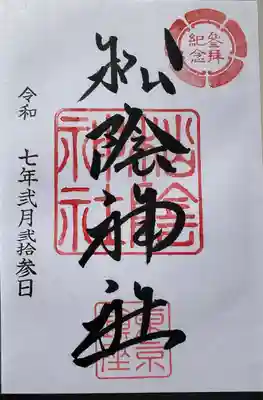 參拜
紀念
松陰神社
松陰
神社
東京
鎮座
令和 七年弐月弐拾参日